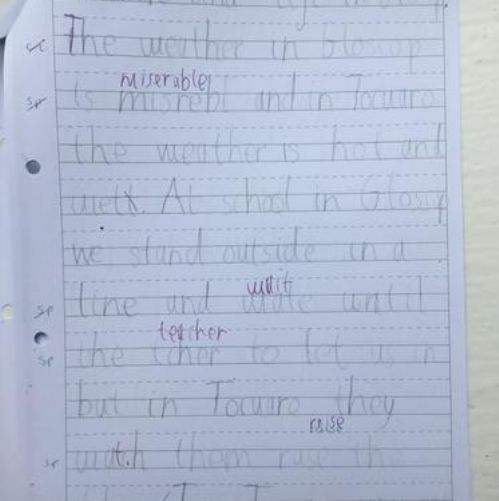 The weather in Glossop
miserable
sp is misrebl and in Tocuaro
the weather is hot and
wett. At school in Glossop
we stand outside in a
wait
sp line and wate until
teacher
sp the tcher to let us in
but in Tocuaro they
raise
sp watch them rase the